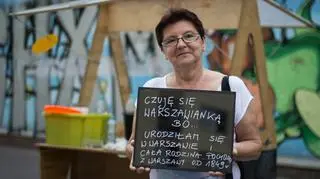 CZUJĘ SIĘ
WARSZAWIANKĄ
BO...
URODZIŁAM SIĘ
W WARSZAWIE I
CAŁA RODZINA POCHODZI
Z WARSZAWY OD 1849